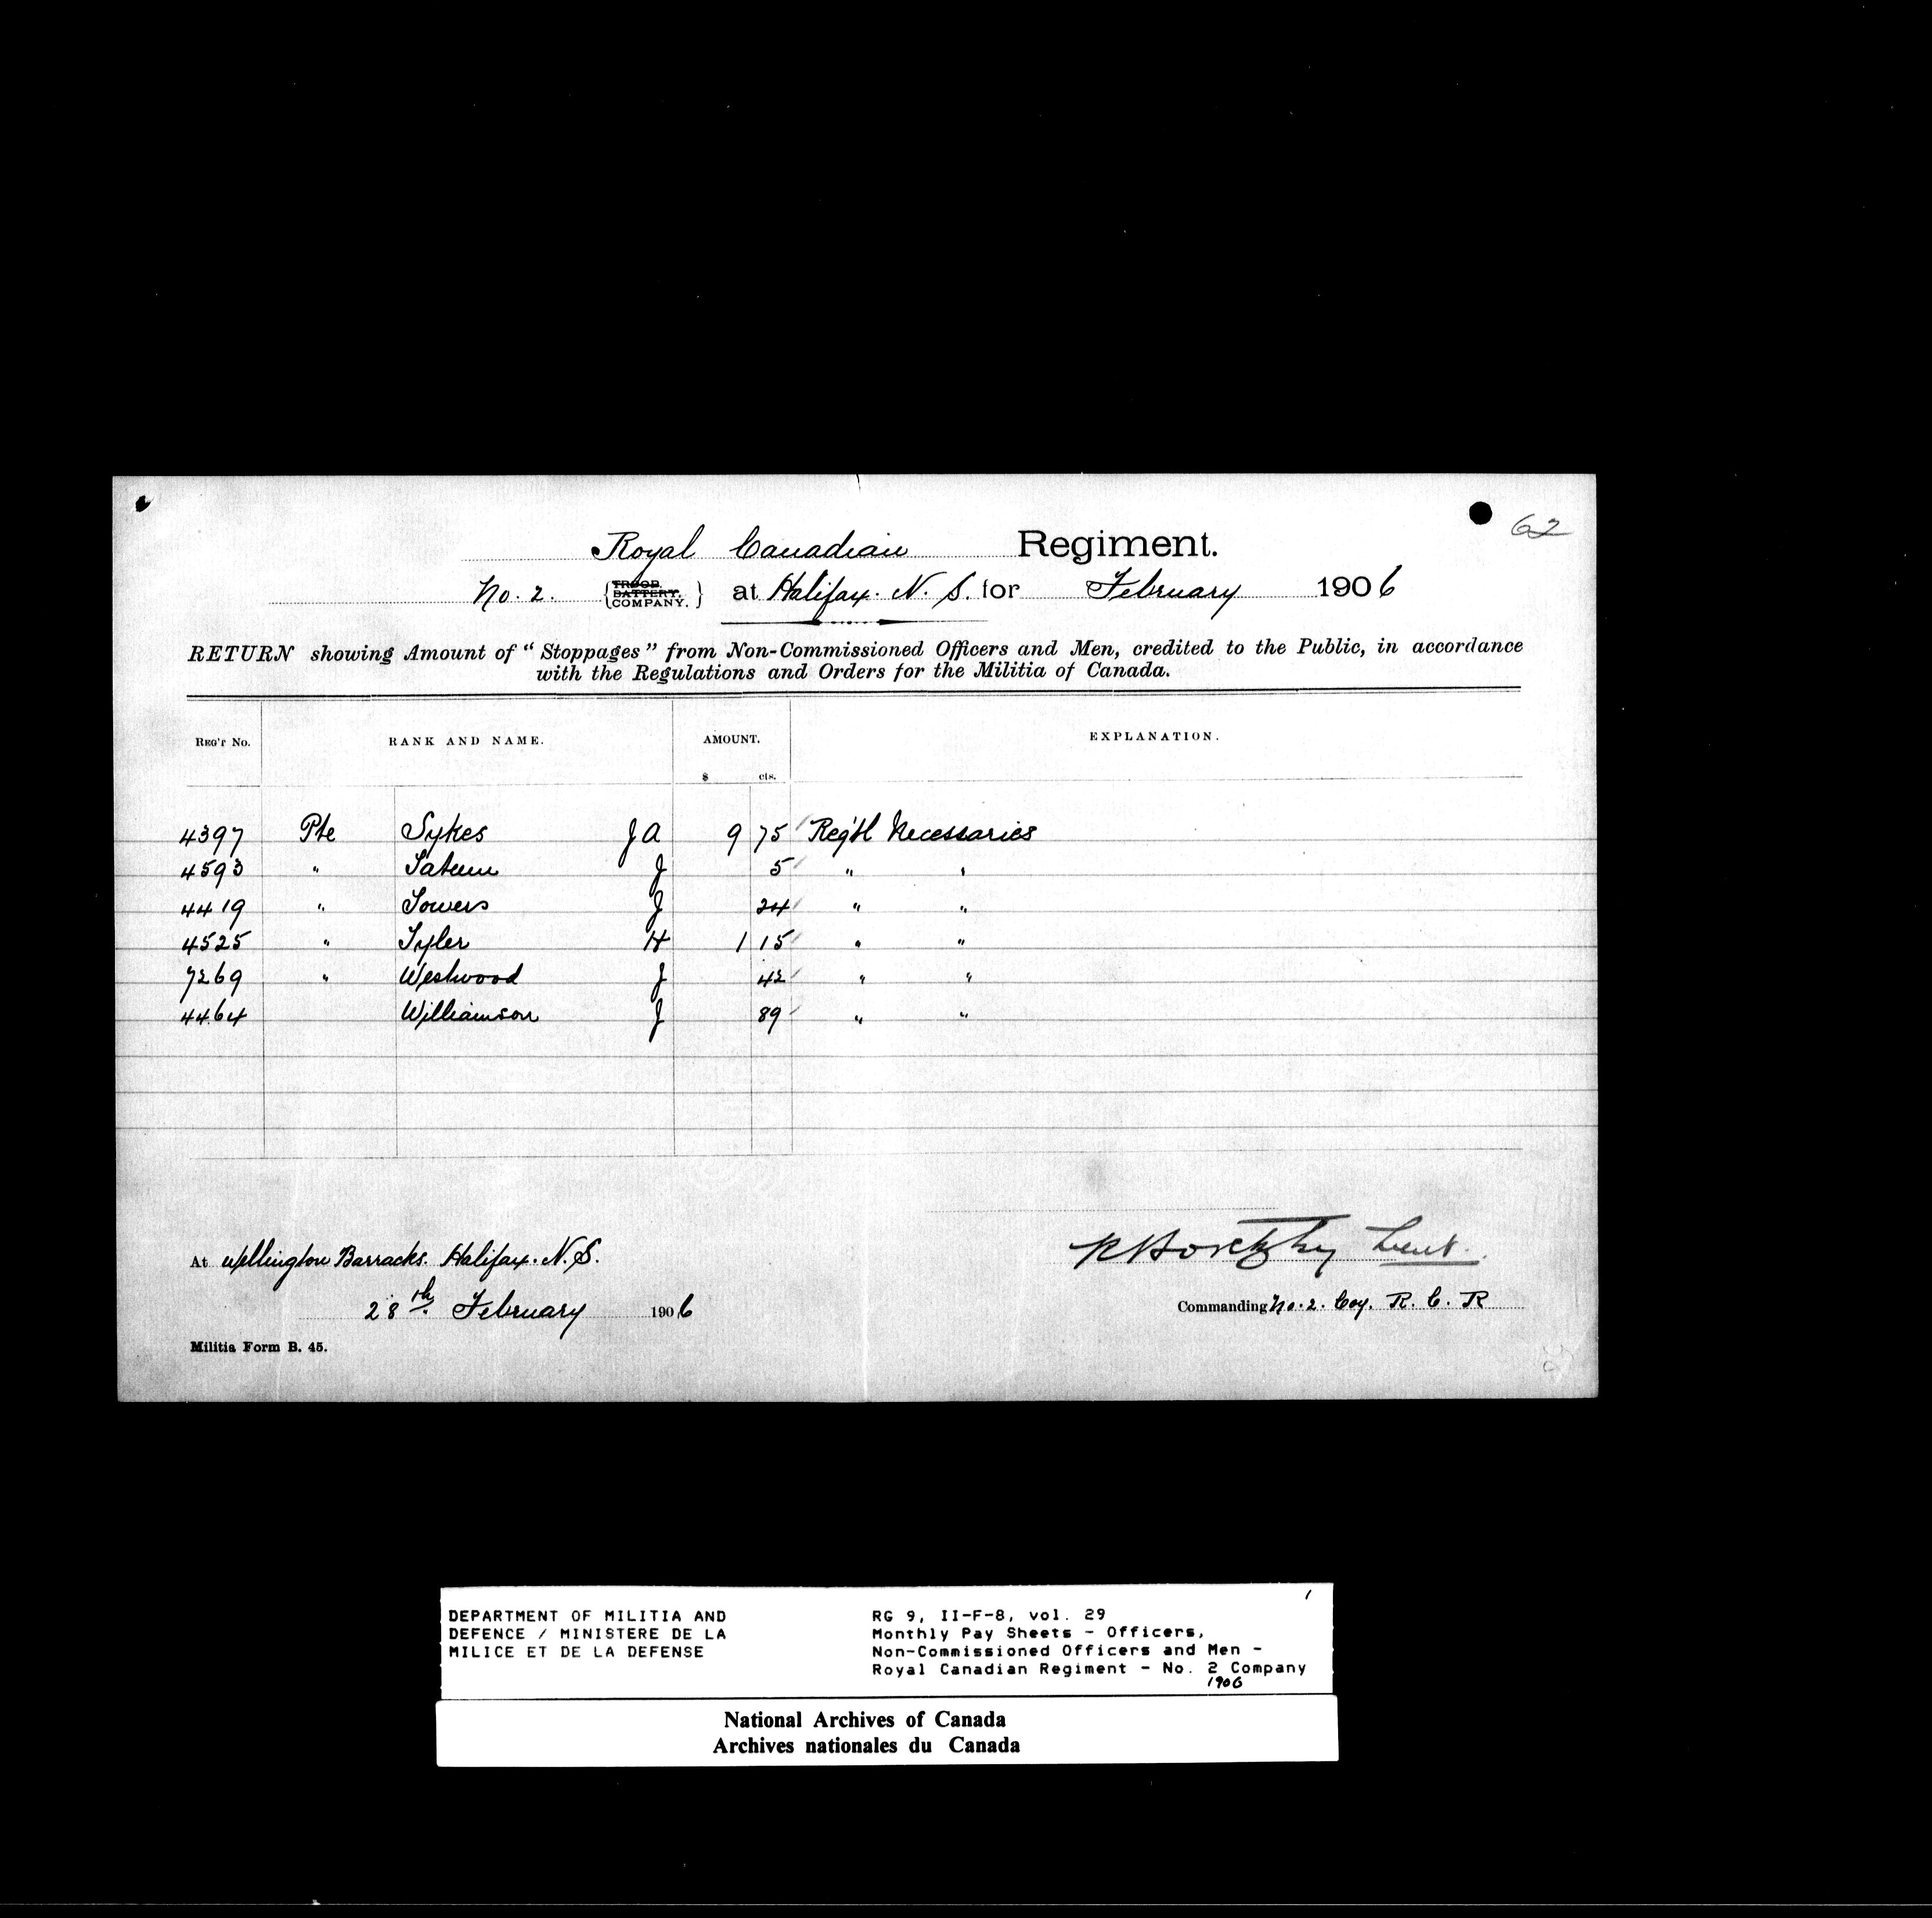 62
Royal Canadian Regiment.
No. 2. {TROOP. BATTERY. COMPANY.} at Halifax. N. S. for February 1906
RETURN showing Amount of "Stoppages" from Non-Commissioned Officers and Men, credited to the Public, in accordance
with the Regulations and Orders for the Militia of Canada.
REG'T No. RANK AND NAME. AMOUNT. EXPLANATION.
$ cts.
4397 Pte Sykes J A 9 75 Reg'tl Necessaries
4593 " Tatum J 5 " "
4419 " Towers J 24 " "
4525 " Tyler H 1 15 " "
7269 " Westwood J 42 " "
4464 Williamson J 89 " "
At Wellington Barracks. Halifax. N. S.
Lieut.
28th. February 1906
Commanding No. 2. Coy. R. C. R
Militia Form B. 45.
DEPARTMENT OF MILITIA AND
DEFENCE / MINISTERE DE LA
MILICE ET DE LA DEFENSE
RG 9, II-F-8, vol. 29
Monthly Pay Sheets - Officers,
Non-Commissioned Officers and Men -
Royal Canadian Regiment - No. 2 Company
1906
National Archives of Canada
Archives nationales du Canada